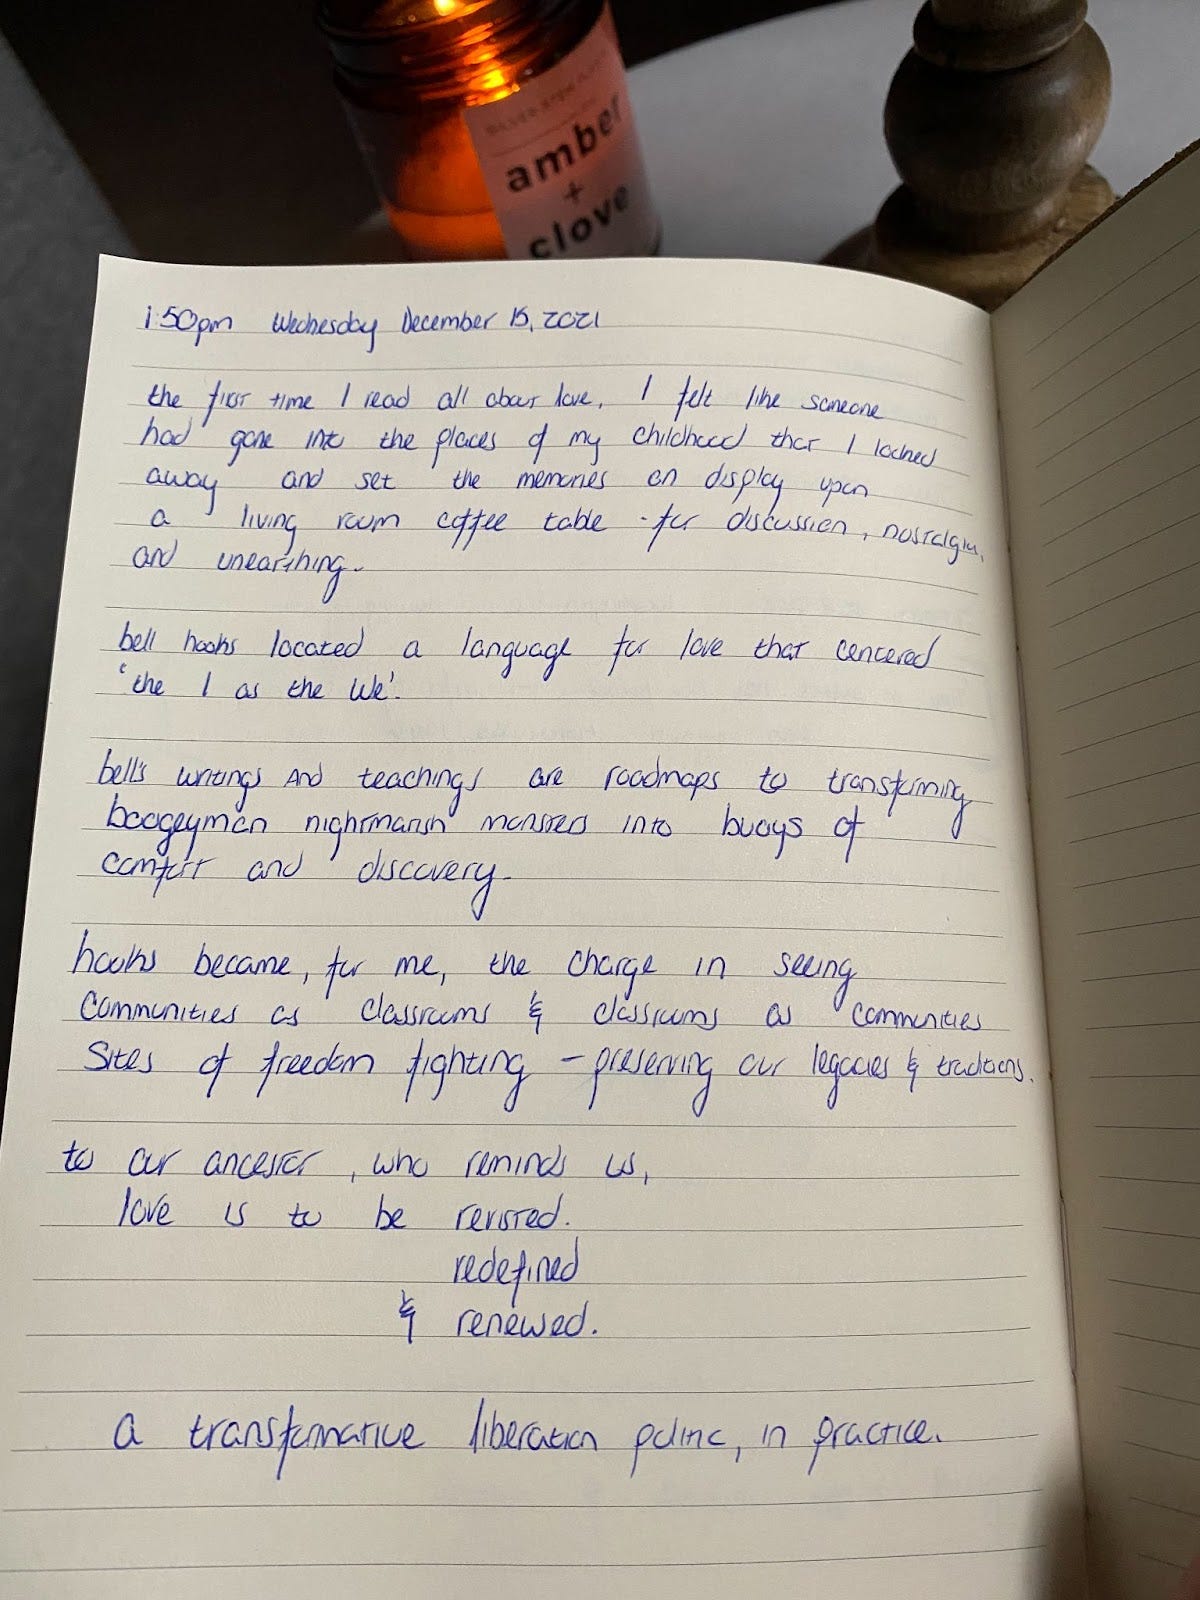 amber
+
clove
1:50pm Wednesday December 15, 2021
the first time I read all about love, I felt like someone
had gone into the places of my childhood that I locked
away and set the memories on display upon
a living room coffee table - for discussion, nostalgia,
and unearthing.
bell hooks located a language for love that centered
'the I as the We'.
bell's writings and teachings are roadmaps to transforming
boogeyman nightmarish monsters into buoys of
comfort and discovery.
hooks became, for me, the charge in seeing
communities as classrooms & classrooms as communities
Sites of freedom fighting - preserving our legacies & traditions.
to our ancestor, who reminds us,
love is to be revisited.
redefined
& renewed.
a transformative liberation politic, in practice.